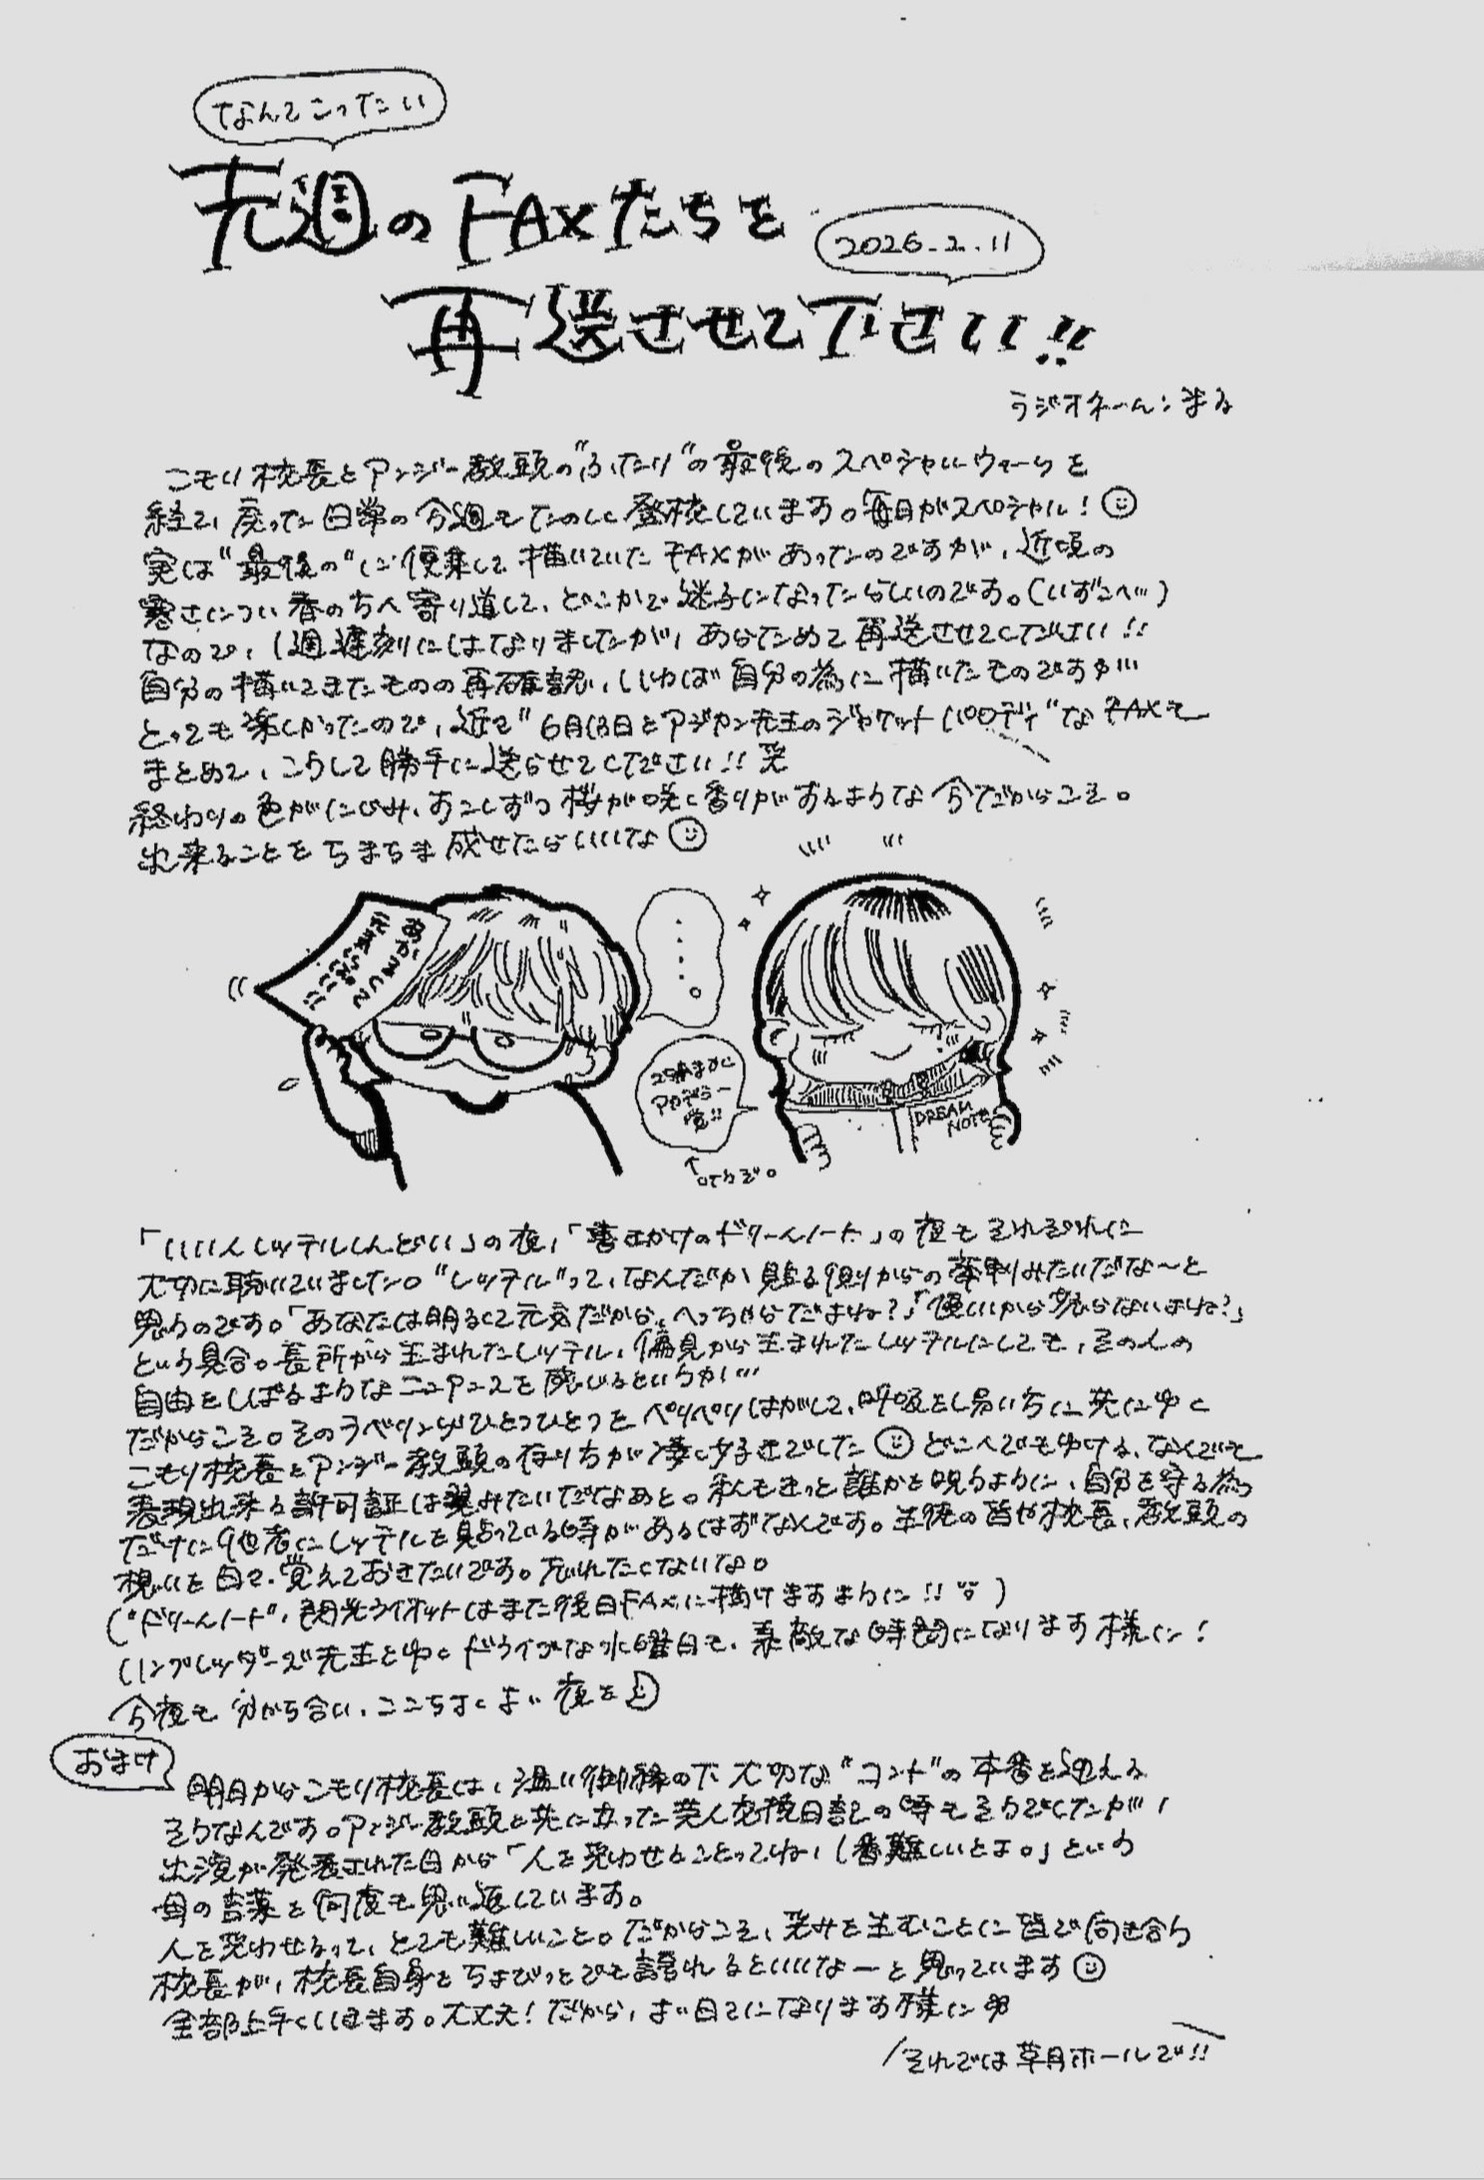 なんてこったい
先週のFAXたちを
2026.2.11
再送させて下さい!!
ラジオネーム:まる
こもり校長とアンジー教頭の"ふたり"の最後のスペシャルウィークを
経て、戻った日常の今週もたのしく登校しています。毎日がスペシャル!
実は"最後の"に便乗して描いていたFAXがあったのですが、近頃の
寒さについ春の方へ寄り道して、どこかで迷子になったらしいのです。(いずこへ…)
なので、1週遅刻にはなりましたが、あらためて再送させてください!!
自分の描いてきたものの再確認、いわば自分の為に描いたものですが…
とっても楽しかったので、近て"6月13日とアジカン先生のジャケットパロディ"なFAXも
まとめて、こうして勝手に送らせてください!!笑
終わりの色がにじみ、すこしずつ桜が咲く香りがするような今だからこそ。
出来ることをちまちま成せたらいいな
あやまって
29歳まずに
DREAM NOTE
「いい人レッテルしんどい」の夜、「書きかけのドリームノート」の夜もそれぞれに
大切に聴いていました。"レッテル"って、なんだか貼る側からの審判みたいだな〜と
思うのです。「あなたは明るくて元気だから、へっちゃらだよね?」「優しいから怒らないよね?」
という具合。長所から生まれたレッテル、偏見から生まれたレッテルにしても、その人の
自由をしばるようなニュアンスを感じるというか…
だからこそ。そのラベリングひとつひとつをペリペリはがして、呼吸をし易い方に共にゆく
こもり校長とアンジー教頭の在り方が凄く好きでした どこへでもゆける、なんでも
表現出来る許可証は翼みたいだなあと。私もきっと誰かを呪うように、自分を守る為
だけに他者にレッテルを貼っている時があるはずなんです。生徒の皆や校長、教頭の
想いを自て、覚えておきたいです。忘れたくないな。
("ドリームノート"、閃光ライオットはまた後日FAXに描けますように!!)
リンプレッダーズ先生とゆくドライブな水曜日も、素敵な時間になります様に!
今夜も分かち合い、ここちよくよい夜を
おまけ
明日からこもり校長は、温い御縁の下大切な"コント"の本番を迎える
そうなんです。アンジー教頭と共に立った芸人交換日記の時もそうでしたが、
出演が発表された日から「人を笑わせることってね、1番難しいとよ。」という
母の言葉を何度も思い返しています。
人を笑わせるって、とても難しいこと。だからこそ、笑みを生むことに皆で向き合う
校長が、校長自身をちょびっとでも誇れるといいなーと思っています
全部上手くいきます。大丈夫!だから、よい日々になります様に
それでは草月ホールで!!